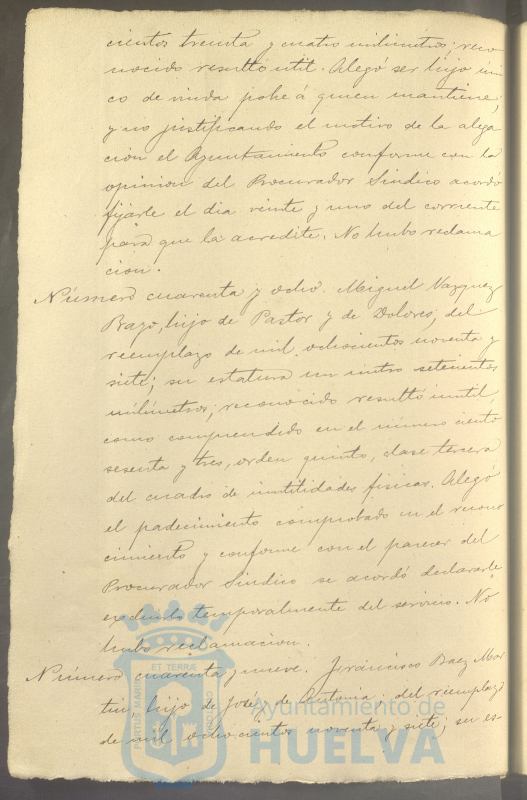 cientos treinta y cuatro milimetros; reco
nocido resultó util. Alegó ser hijo úni
co de viuda pobre á quien mantiene;
y no justificando el motivo de la alega
ción el Ayuntamiento conforme con la
opinion del Procurador Sindico acordó
fijarle el dia veinte y uno del corriente
para que la acredite. No hubo reclama
cion.
Número cuarenta y ocho. Miguel Vazquez
Bazo, hijo de Pastor y de Dolores, del
reemplazo de mil ochocientos noventa y
siete; su estatura un metro setecientos
milimetros; reconocido resultó inutil,
como comprendido en el número ciento
sesenta y tres, orden quinto, clase tercera
del cuadro de inutilidades fisicas. Alegó
el padecimiento comprobado en el recono
cimiento y conforme con el parecer del
Procurador Sindico se acordó declararle
excluido temporalmente del servicio. No
hubo reclamacion.
Número cuarenta y nueve. Francisco Baez Mar
tin hijo de José y de Antonia; del reemplazo
de mil ochocientos noventa y siete; su es-
PORTUS MARIS ET TERRÆ CUSTODIA
Ayuntamiento de
HUELVA